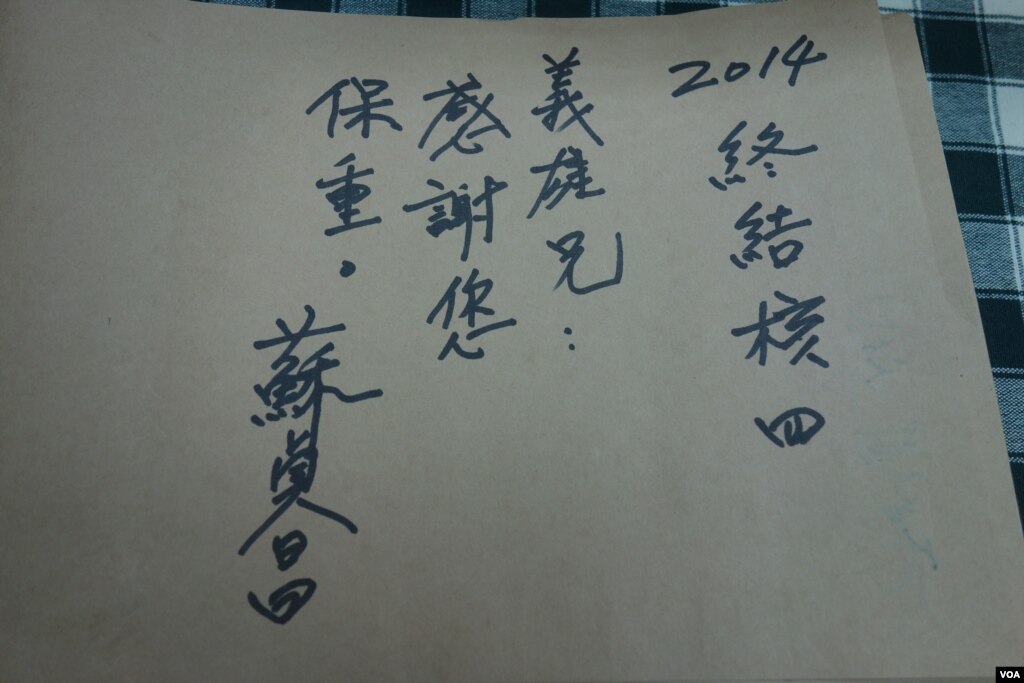 2014終結核四
義雄兄：
感謝您
保重。
蘇貞昌
VOA